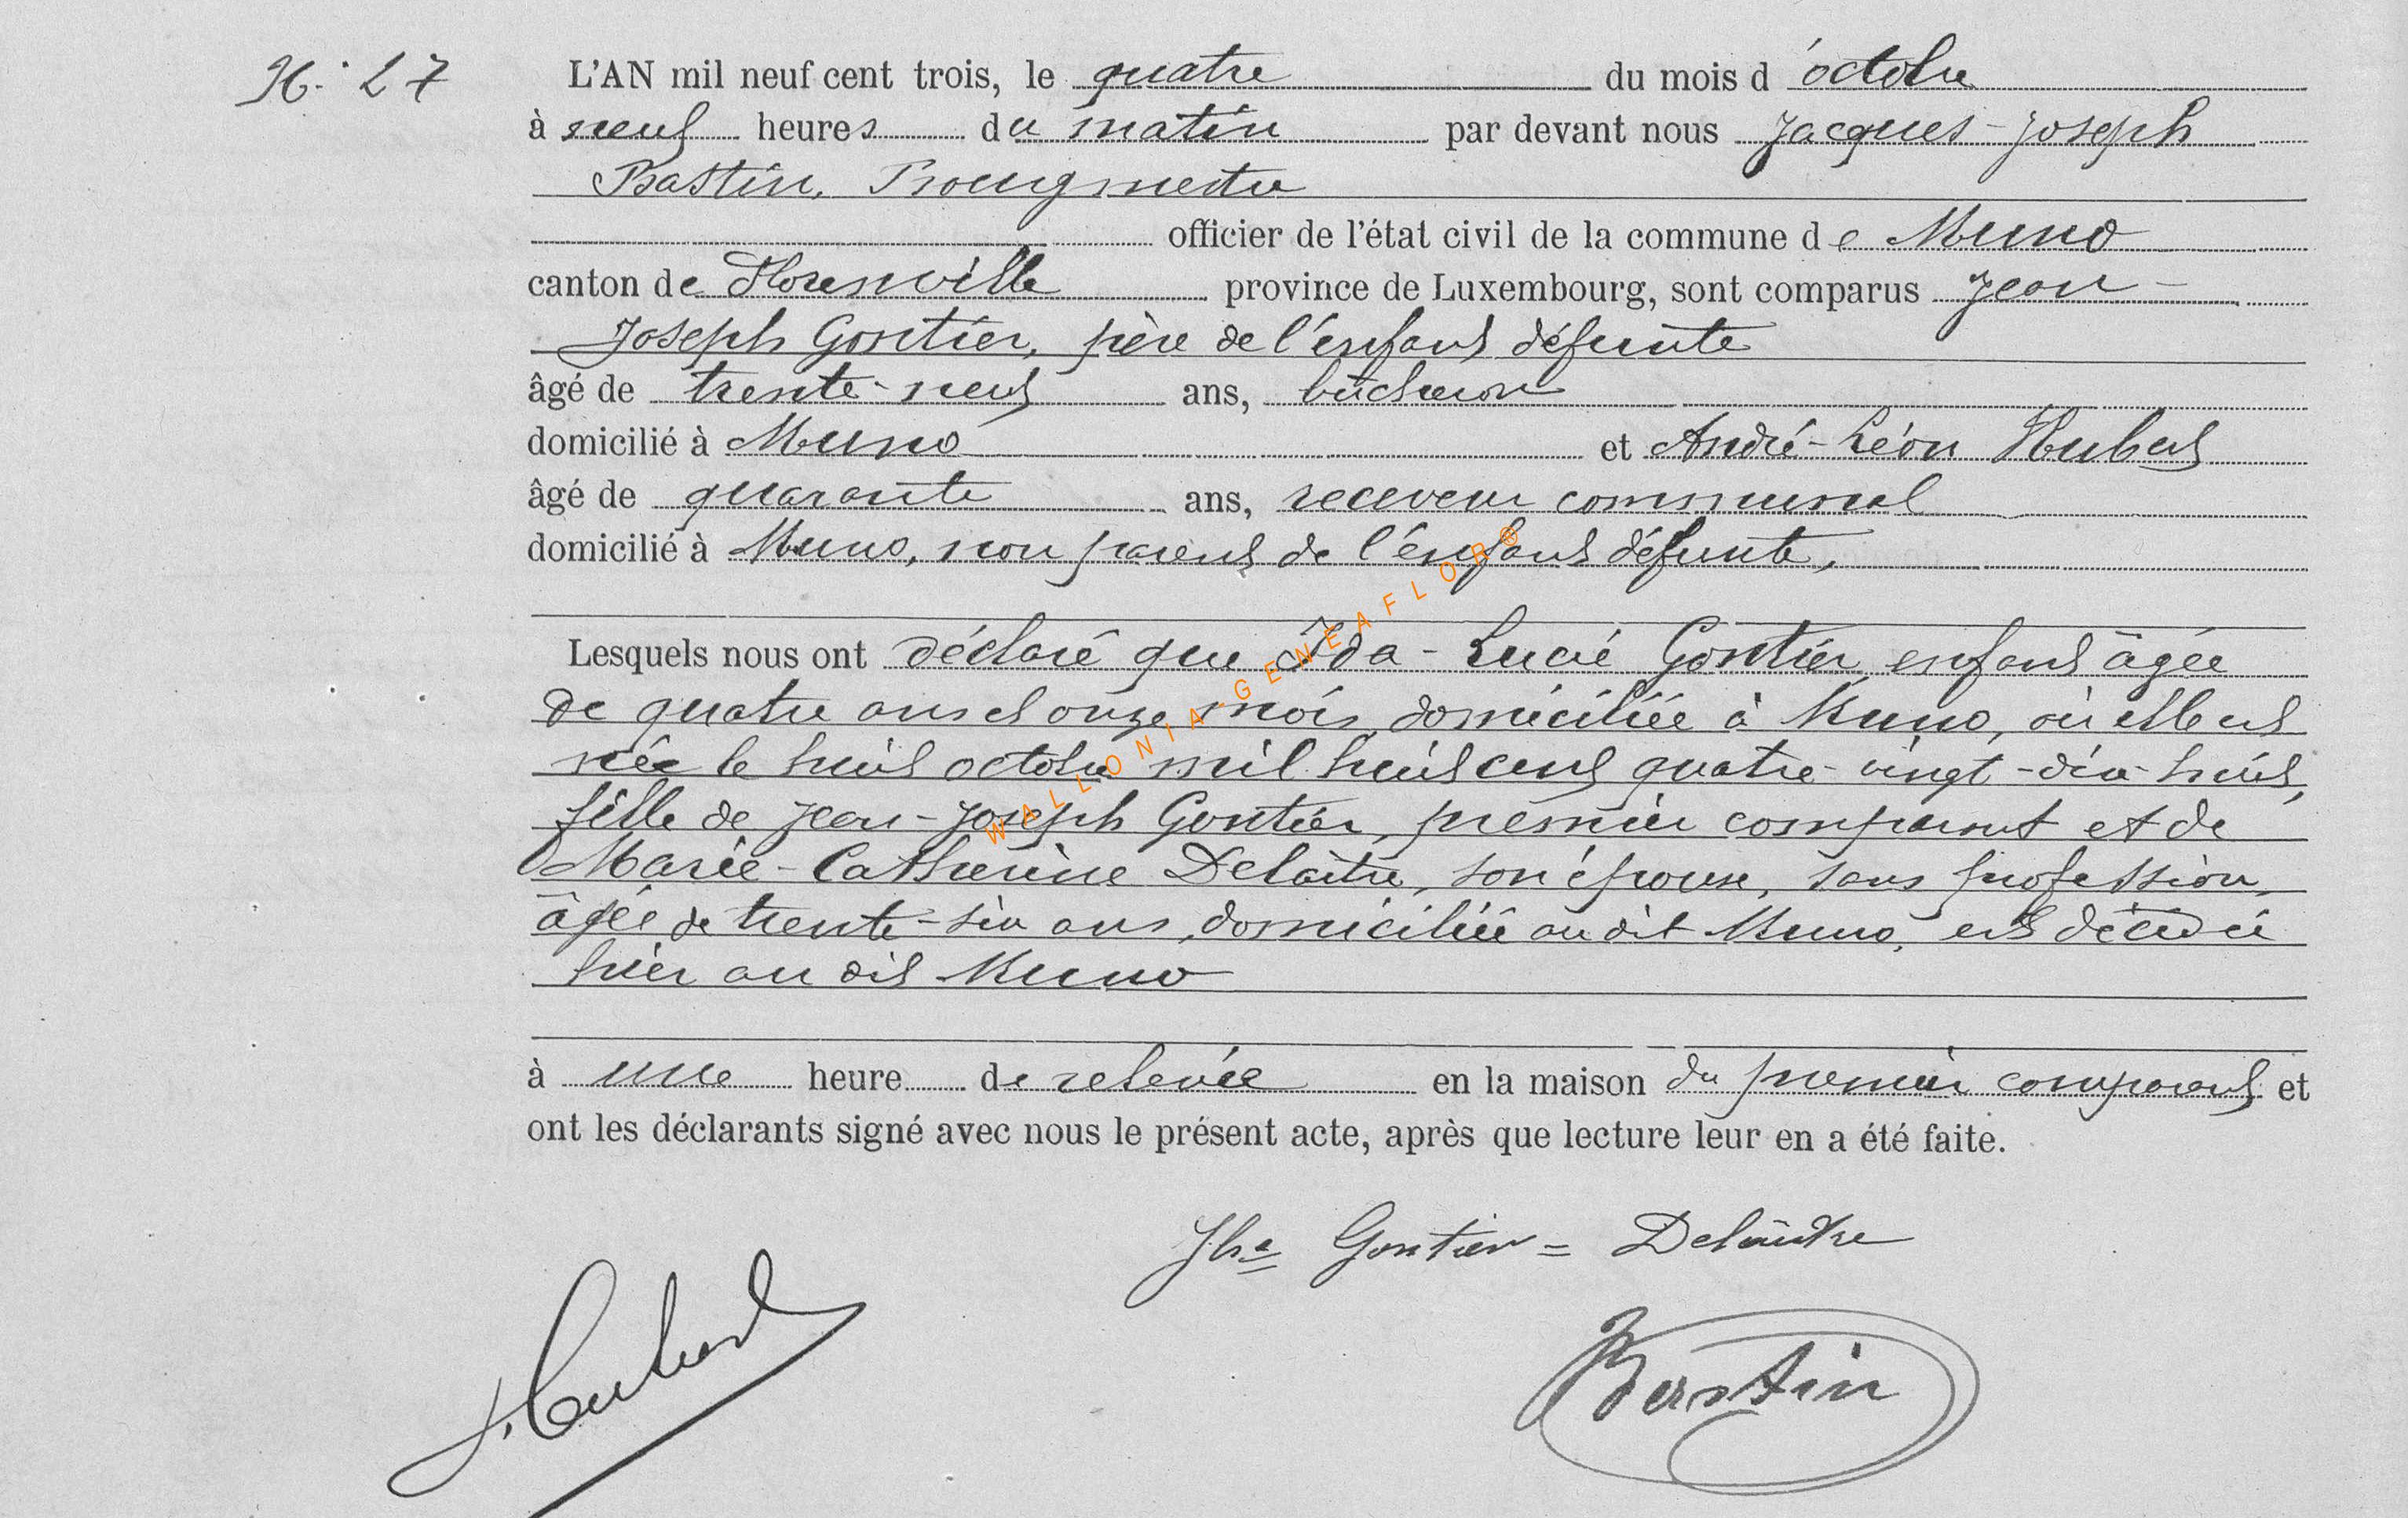 N° 27
L'AN mil neuf cent trois, le quatre du mois d'octobre
à neuf heures du matin par devant nous Jacques-Joseph
Bastin, Bourgmestre
officier de l'état civil de la commune de Muno
canton de Florenville province de Luxembourg, sont comparus Jean-
Joseph Gontier, père de l'enfant défunte
âgé de trente-neuf ans, bûcheron
domicilié à Muno et André-Léon Hubert
âgé de quarante ans, receveur communal
domicilié à Muno, non parent de l'enfant défunte,
Lesquels nous ont déclaré que Ida-Lucie Gontier, enfant âgée
de quatre ans et onze mois, domiciliée à Muno, où elle est
née le huit octobre mil huit cent quatre-vingt-dix-huit,
fille de Jean-Joseph Gontier, premier comparant et de
Marie-Catherine Delaitre, son épouse, sans profession,
âgée de trente-six ans, domiciliée au dit Muno, est décédée
hier au dit Muno
à une heure de relevée en la maison du premier comparant et
ont les déclarants signé avec nous le présent acte, après que lecture leur en a été faite.
Gontier = Delaitre
Hubert
Bastin
WALLONIA-GENEAFLOR®